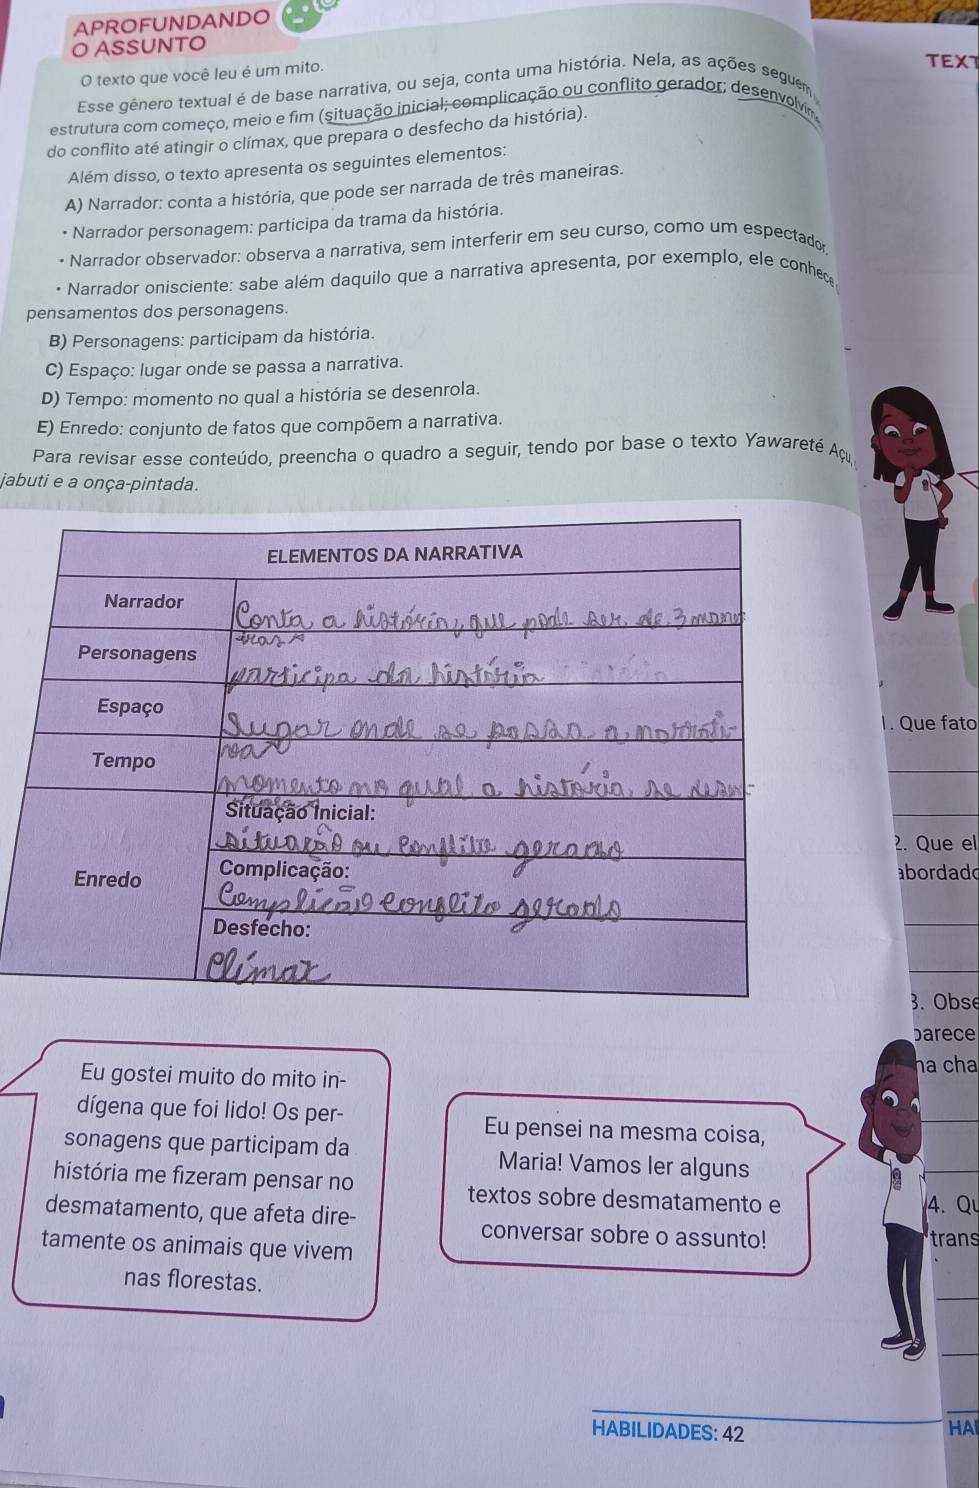 APROFUNDANDO
O ASSUNTO
O texto que você leu é um mito.
Esse gênero textual é de base narrativa, ou seja, conta uma história. Nela, as ações seguem
estrutura com começo, meio e fim (situação inicial; complicação ou conflito gerador; desenvolvim
do conflito até atingir o clímax, que prepara o desfecho da história).
Além disso, o texto apresenta os seguintes elementos:
A) Narrador: conta a história, que pode ser narrada de três maneiras.
• Narrador personagem: participa da trama da história.
• Narrador observador: observa a narrativa, sem interferir em seu curso, como um espectador.
• Narrador onisciente: sabe além daquilo que a narrativa apresenta, por exemplo, ele conhece
pensamentos dos personagens.
B) Personagens: participam da história.
C) Espaço: lugar onde se passa a narrativa.
D) Tempo: momento no qual a história se desenrola.
E) Enredo: conjunto de fatos que compõem a narrativa.
Para revisar esse conteúdo, preencha o quadro a seguir, tendo por base o texto Yawareté Açu,
jabuti e a onça-pintada.
ELEMENTOS DA NARRATIVA
Narrador
Conta a história, que pode ser de 3 mane
iras
Personagens
participa da história
Espaço
Lugar onde se passa a narrati-
Tempo
momento no qual a história se
Enredo
Situação Inicial:
situação ou conflito gerando
Complicação:
Complicão conflito gerando
Desfecho:
Clímax
Eu gostei muito do mito in-
dígena que foi lido! Os per-
sonagens que participam da
história me fizeram pensar no
desmatamento, que afeta dire-
tamente os animais que vivem
nas florestas.
Eu pensei na mesma coisa,
Maria! Vamos ler alguns
textos sobre desmatamento e
conversar sobre o assunto!
HABILIDADES: 42
TEXT
1. Que fato
2. Que el
abordado
3. Obse
parece
na cha
4. Qu
trans
HAB